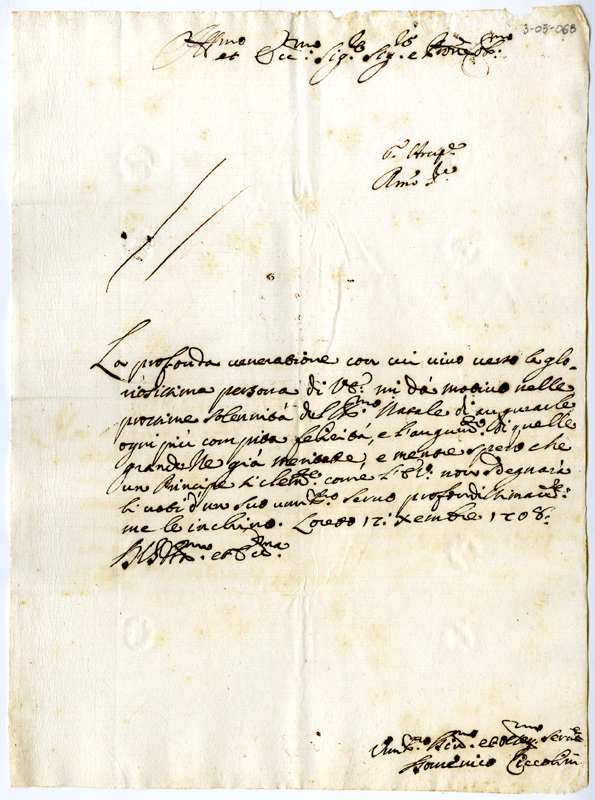 3-05-065
Ill.mo et Ecc.mo Sig.r Sig.r e
La profonda venerazione con cui vivo verso la glo-
riosissima persona di V.S.a mi dà motivo nelle
prossime solennità del S.mo Natale di augurarle
ogni più compita felicità, e l'augum.to di quelle
grandezze già meritate, e mentre spero che
un Principe sì clem.te come non sdegnarà
li voti d'un suo um.mo servo profondissimam.te
me le inchino. Loreto 12: Xembre 1708.
et Ecc.ma
Um.mo et obblig.mo Serv.e
Domenico Ceccolini